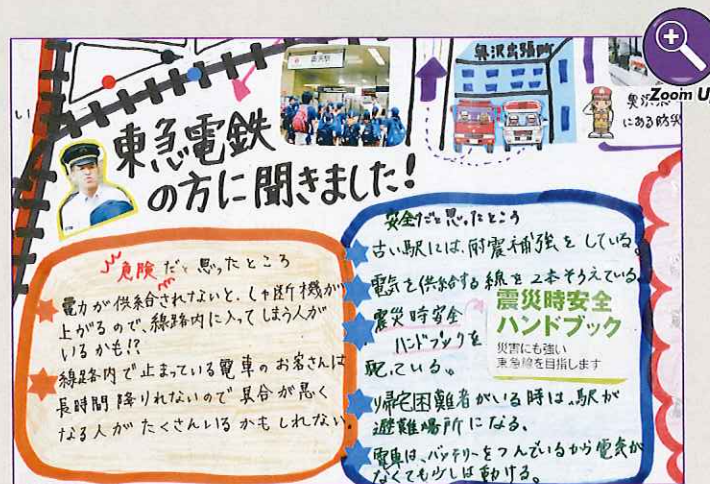 Zoom Up
奥沢駅
奥沢出張所
にある防災
東急電鉄
の方に聞きました!
危険だと思ったところ
電力が供給されないと、しゃ断機が
上がるので、線路内に入ってしまう人が
いるかも!?
線路内で止まっている電車のお客さんは
長時間降りれないので具合が悪く
なる人がたくさんいるかもしれない
安全だと思ったところ
古い駅には、耐震補強をしている。
電気を供給する線を2本そうえている
震災時安全
ハンドブックを
配っている。
震災時安全
ハンドブック
災害にも強い
東急線を目指します
帰宅困難者がいる時は、駅が
避難場所になる。
電車は、バッテリーをつんでいるから電気が
なくても少しは動ける。